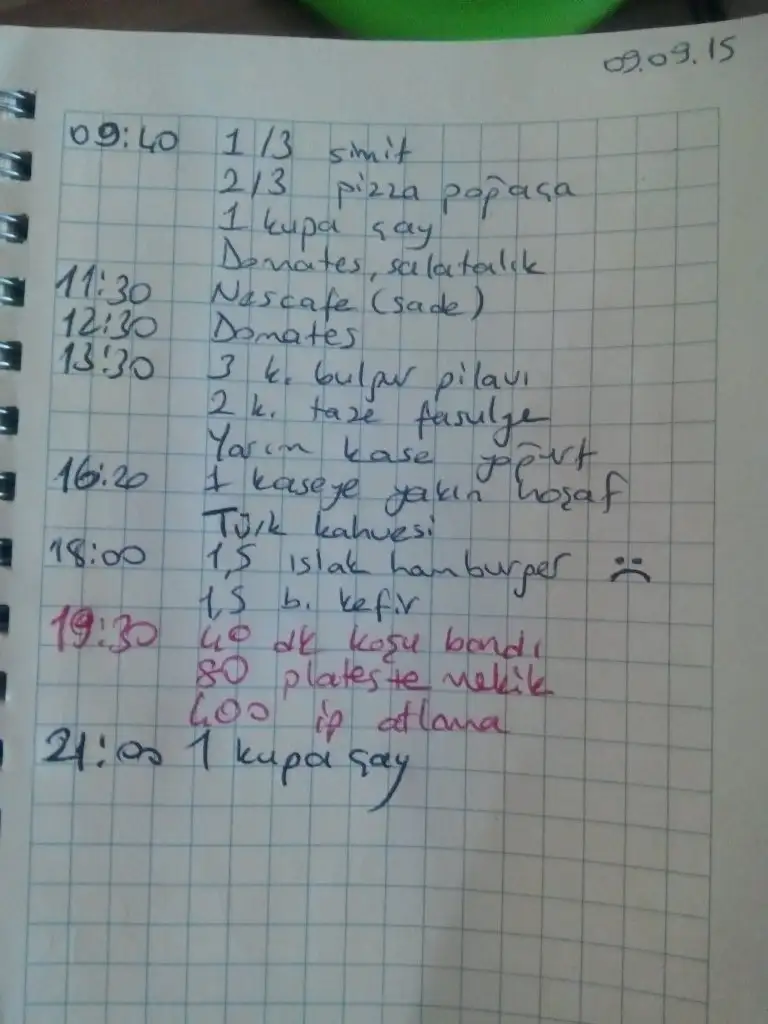 09.09.15
09:40 1/3 simit
2/3 pizza poğaça
1 kupa çay
Domates, salatalık
11:30 Nescafe (sade)
12:30 Domates
13:30 3 k. bulgur pilavı
2 k. taze fasulye
Yarım kase yoğurt
16:20 1 kaseye yakın hoşaf
Türk kahvesi
18:00 1,5 ıslak hamburger :(
1,5 b. kefir
19:30 40 dk koşu bandı
80 plateste mekik
400 ip atlama
21:00 1 kupa çay